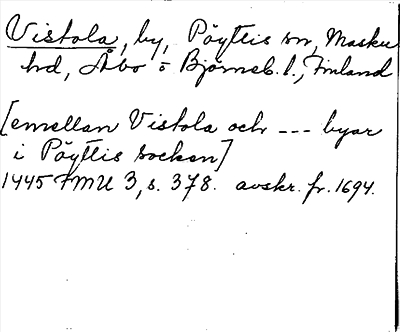 Vistola, by, Pöyttis sn, Masku
hd, Åbo o Björneb. l., Finland
[emellan Vistola och --- byar
i Pöyttis socken]
1445 FMU 3, s. 378. avskr. fr. 1694.